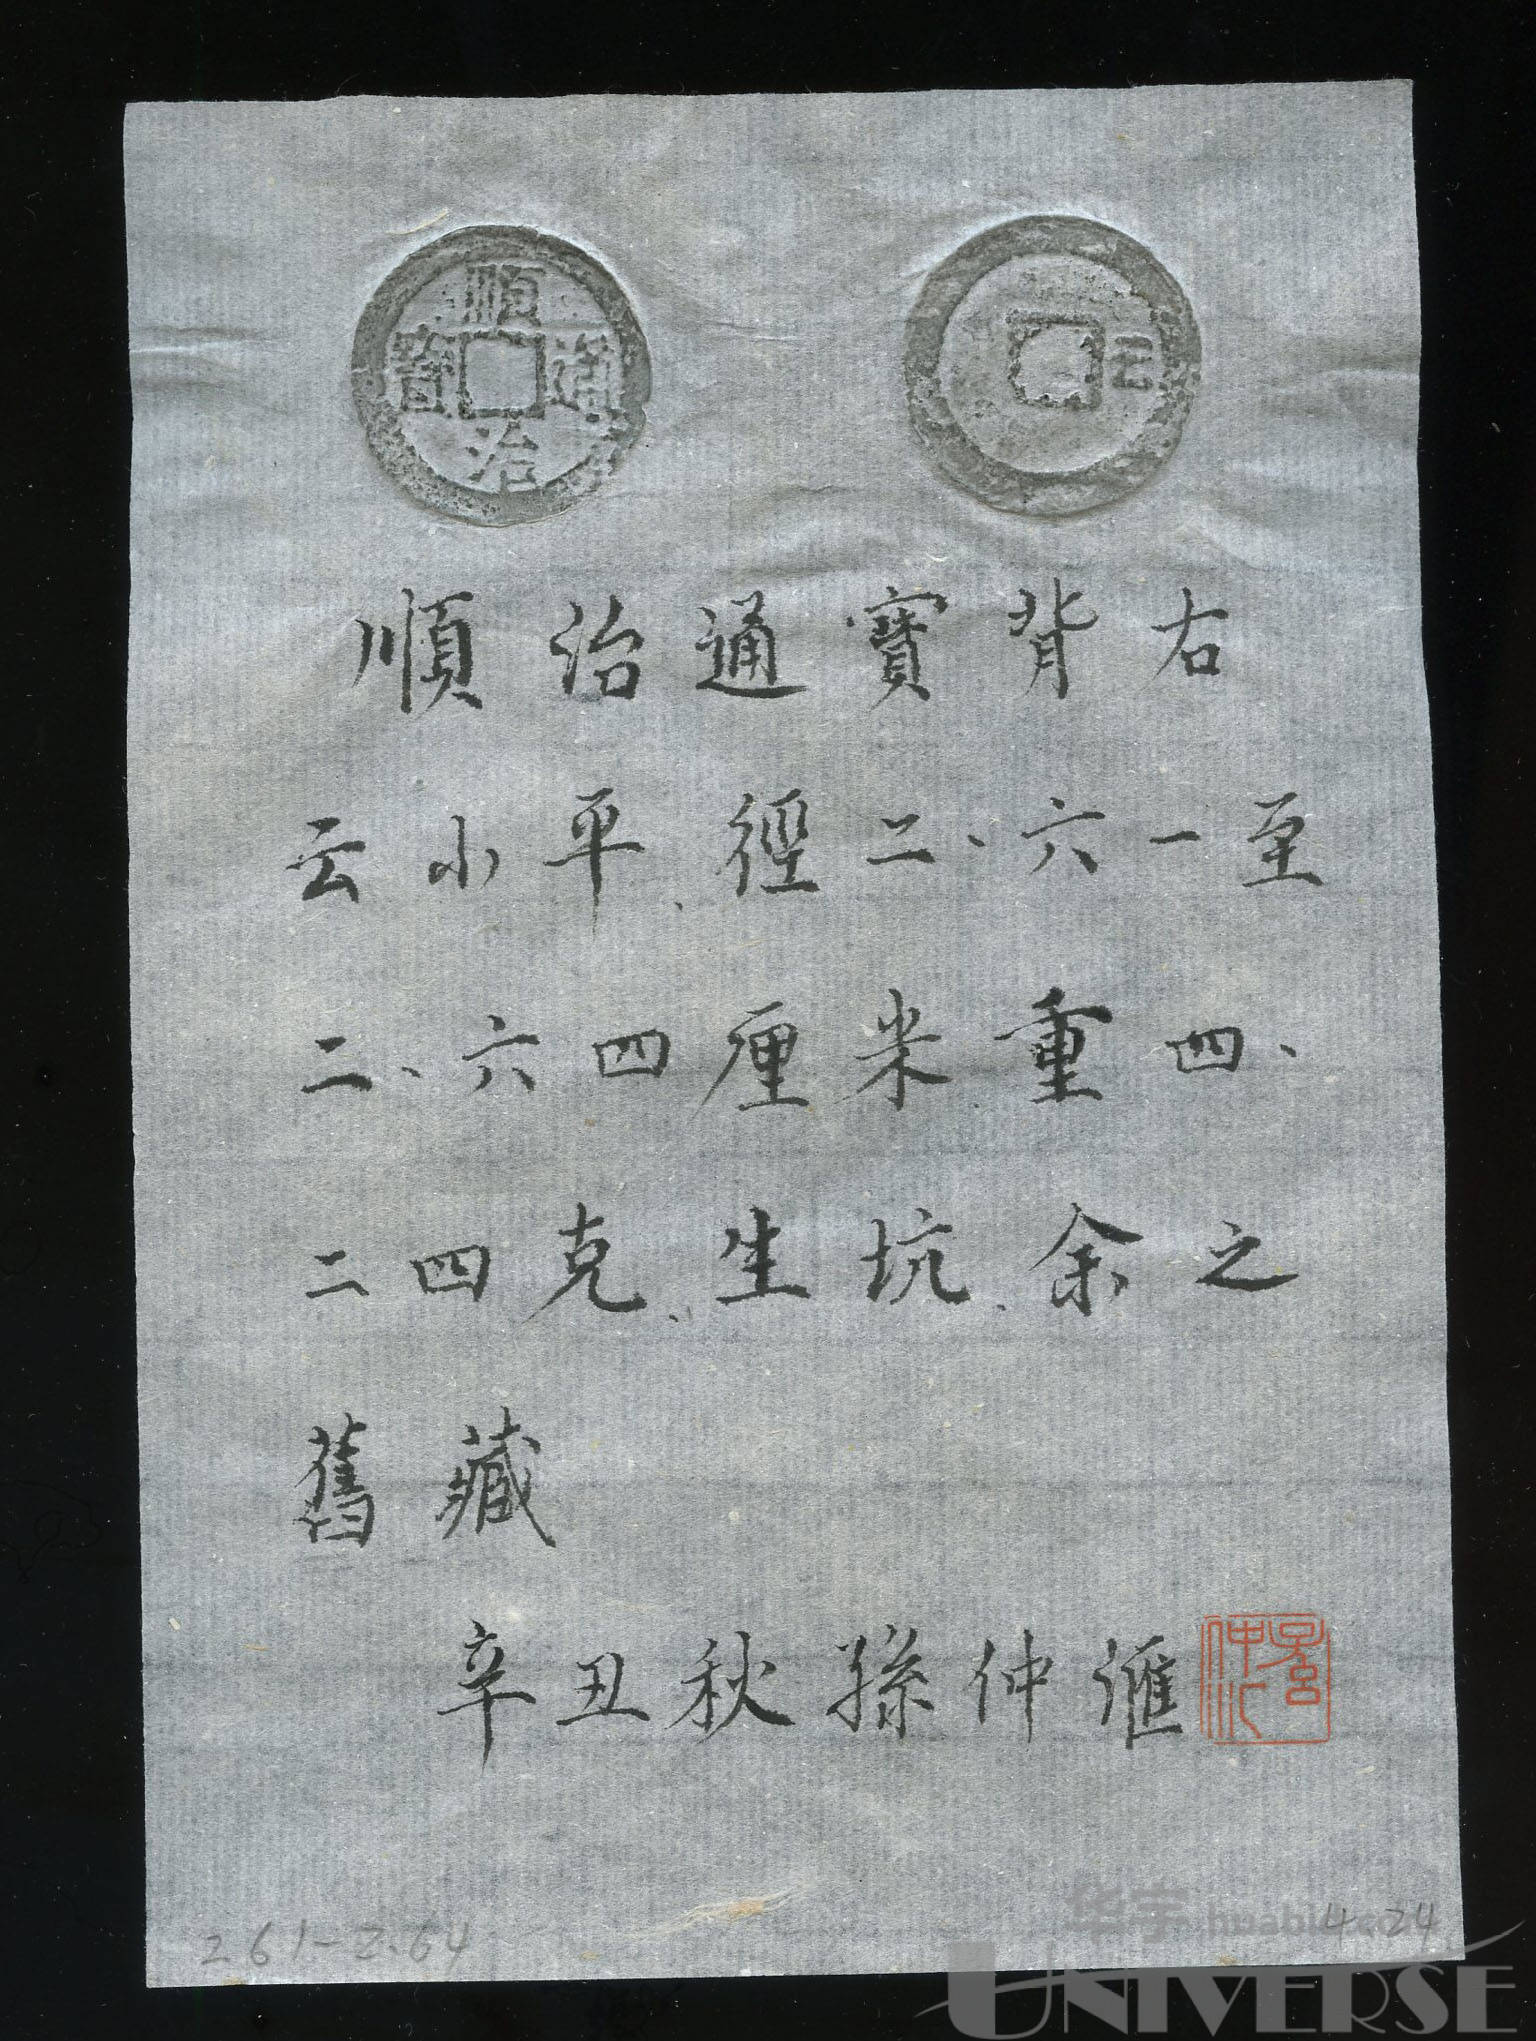 順治通寳
云
順治通寳背右
云小平、徑二、六一至
二、六四厘米重四、
二四克、生坑、余之
舊藏
辛丑秋孫仲匯
2.61-2.64
4.24
华宇
UNIVERSE